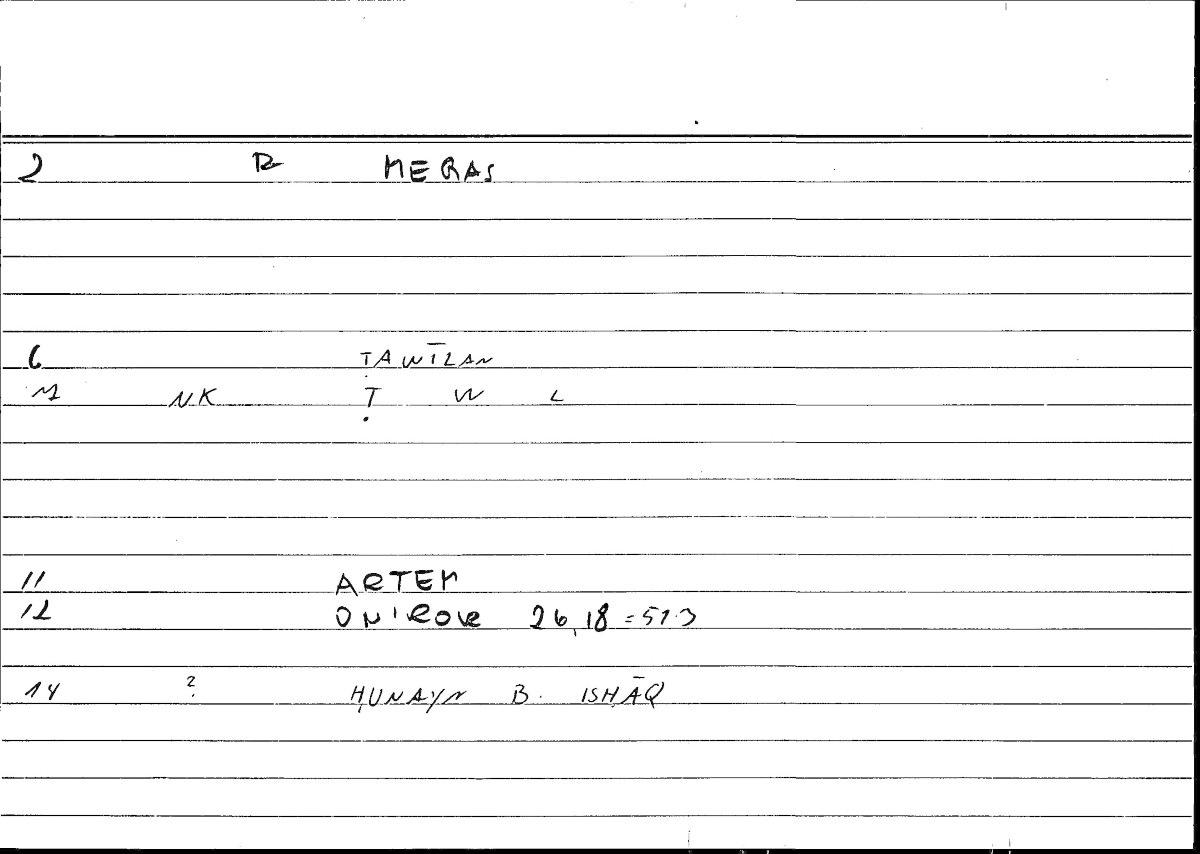 2 R MEGAS
6 ṬAWĪLAN
NK Ṭ W L
11 ARTEM
12 ONIROKR 26,18 = 51.3
14 ? ḤUNAYN B. ISḤĀQ